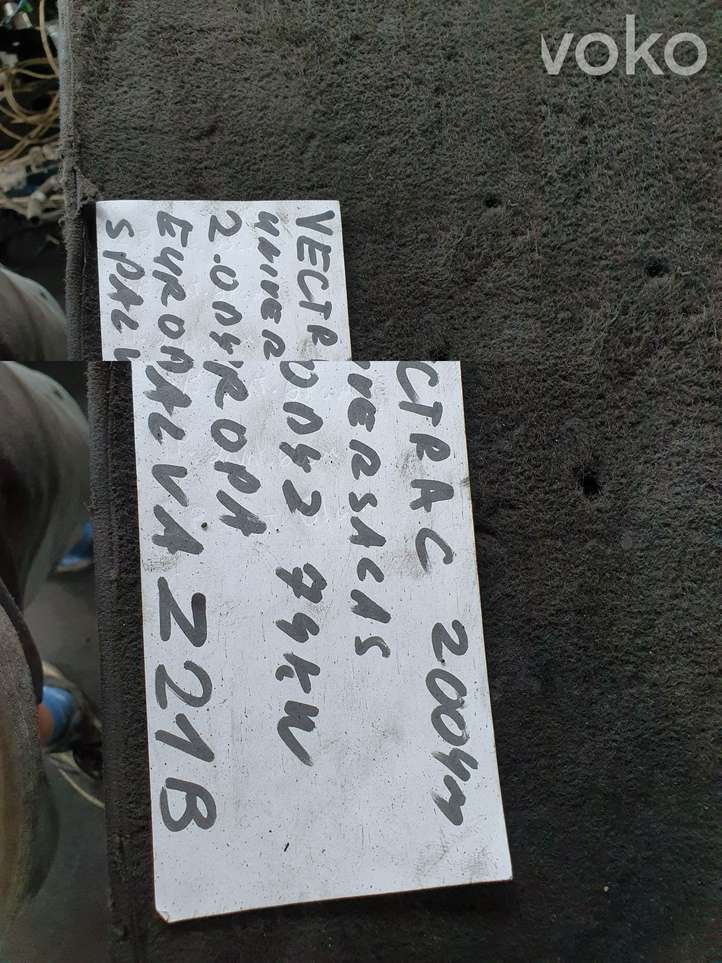 voko
VECTR
UNIVER
2.0 D4
EUROP
SPALV
CTRA C 2004m
VERSALAS
0 D42 74kW
ROPA
ALVA Z21B